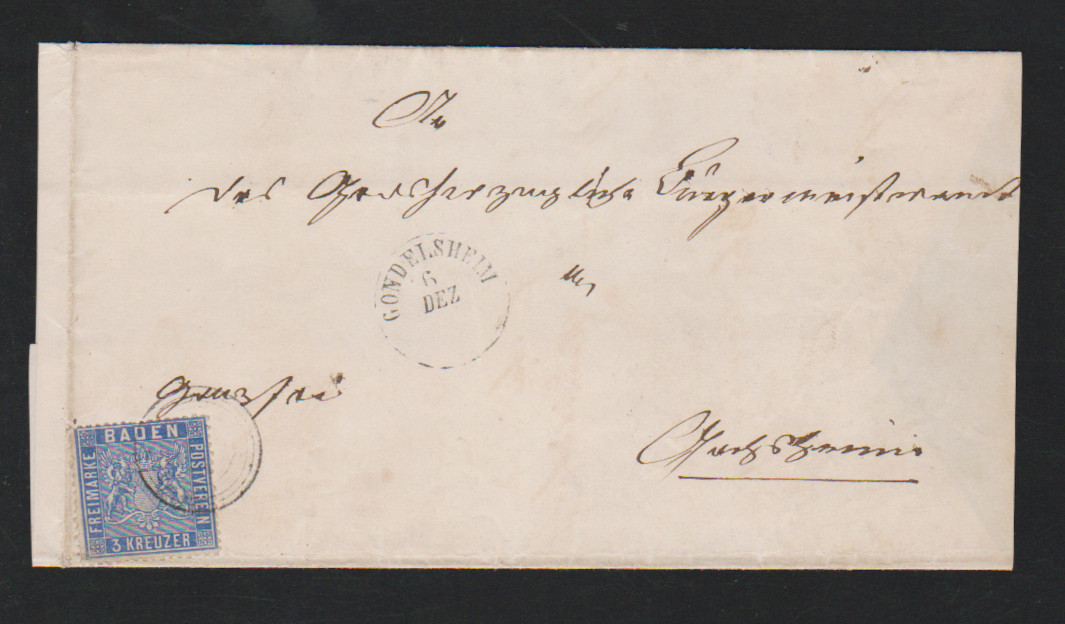 An
das Großherzogliche Bürgermeisteramt
GONDELSHEIM
6
DEZ
zu
Ganz frei
Gochsheim
BADEN
FREIMARKE
POSTVEREIN
3 KREUZER